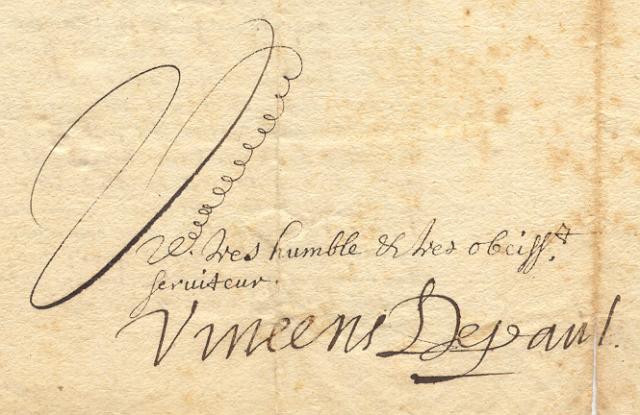 V. tres humble & tres obeiss.t
seruiteur.
Vincens Depaul.